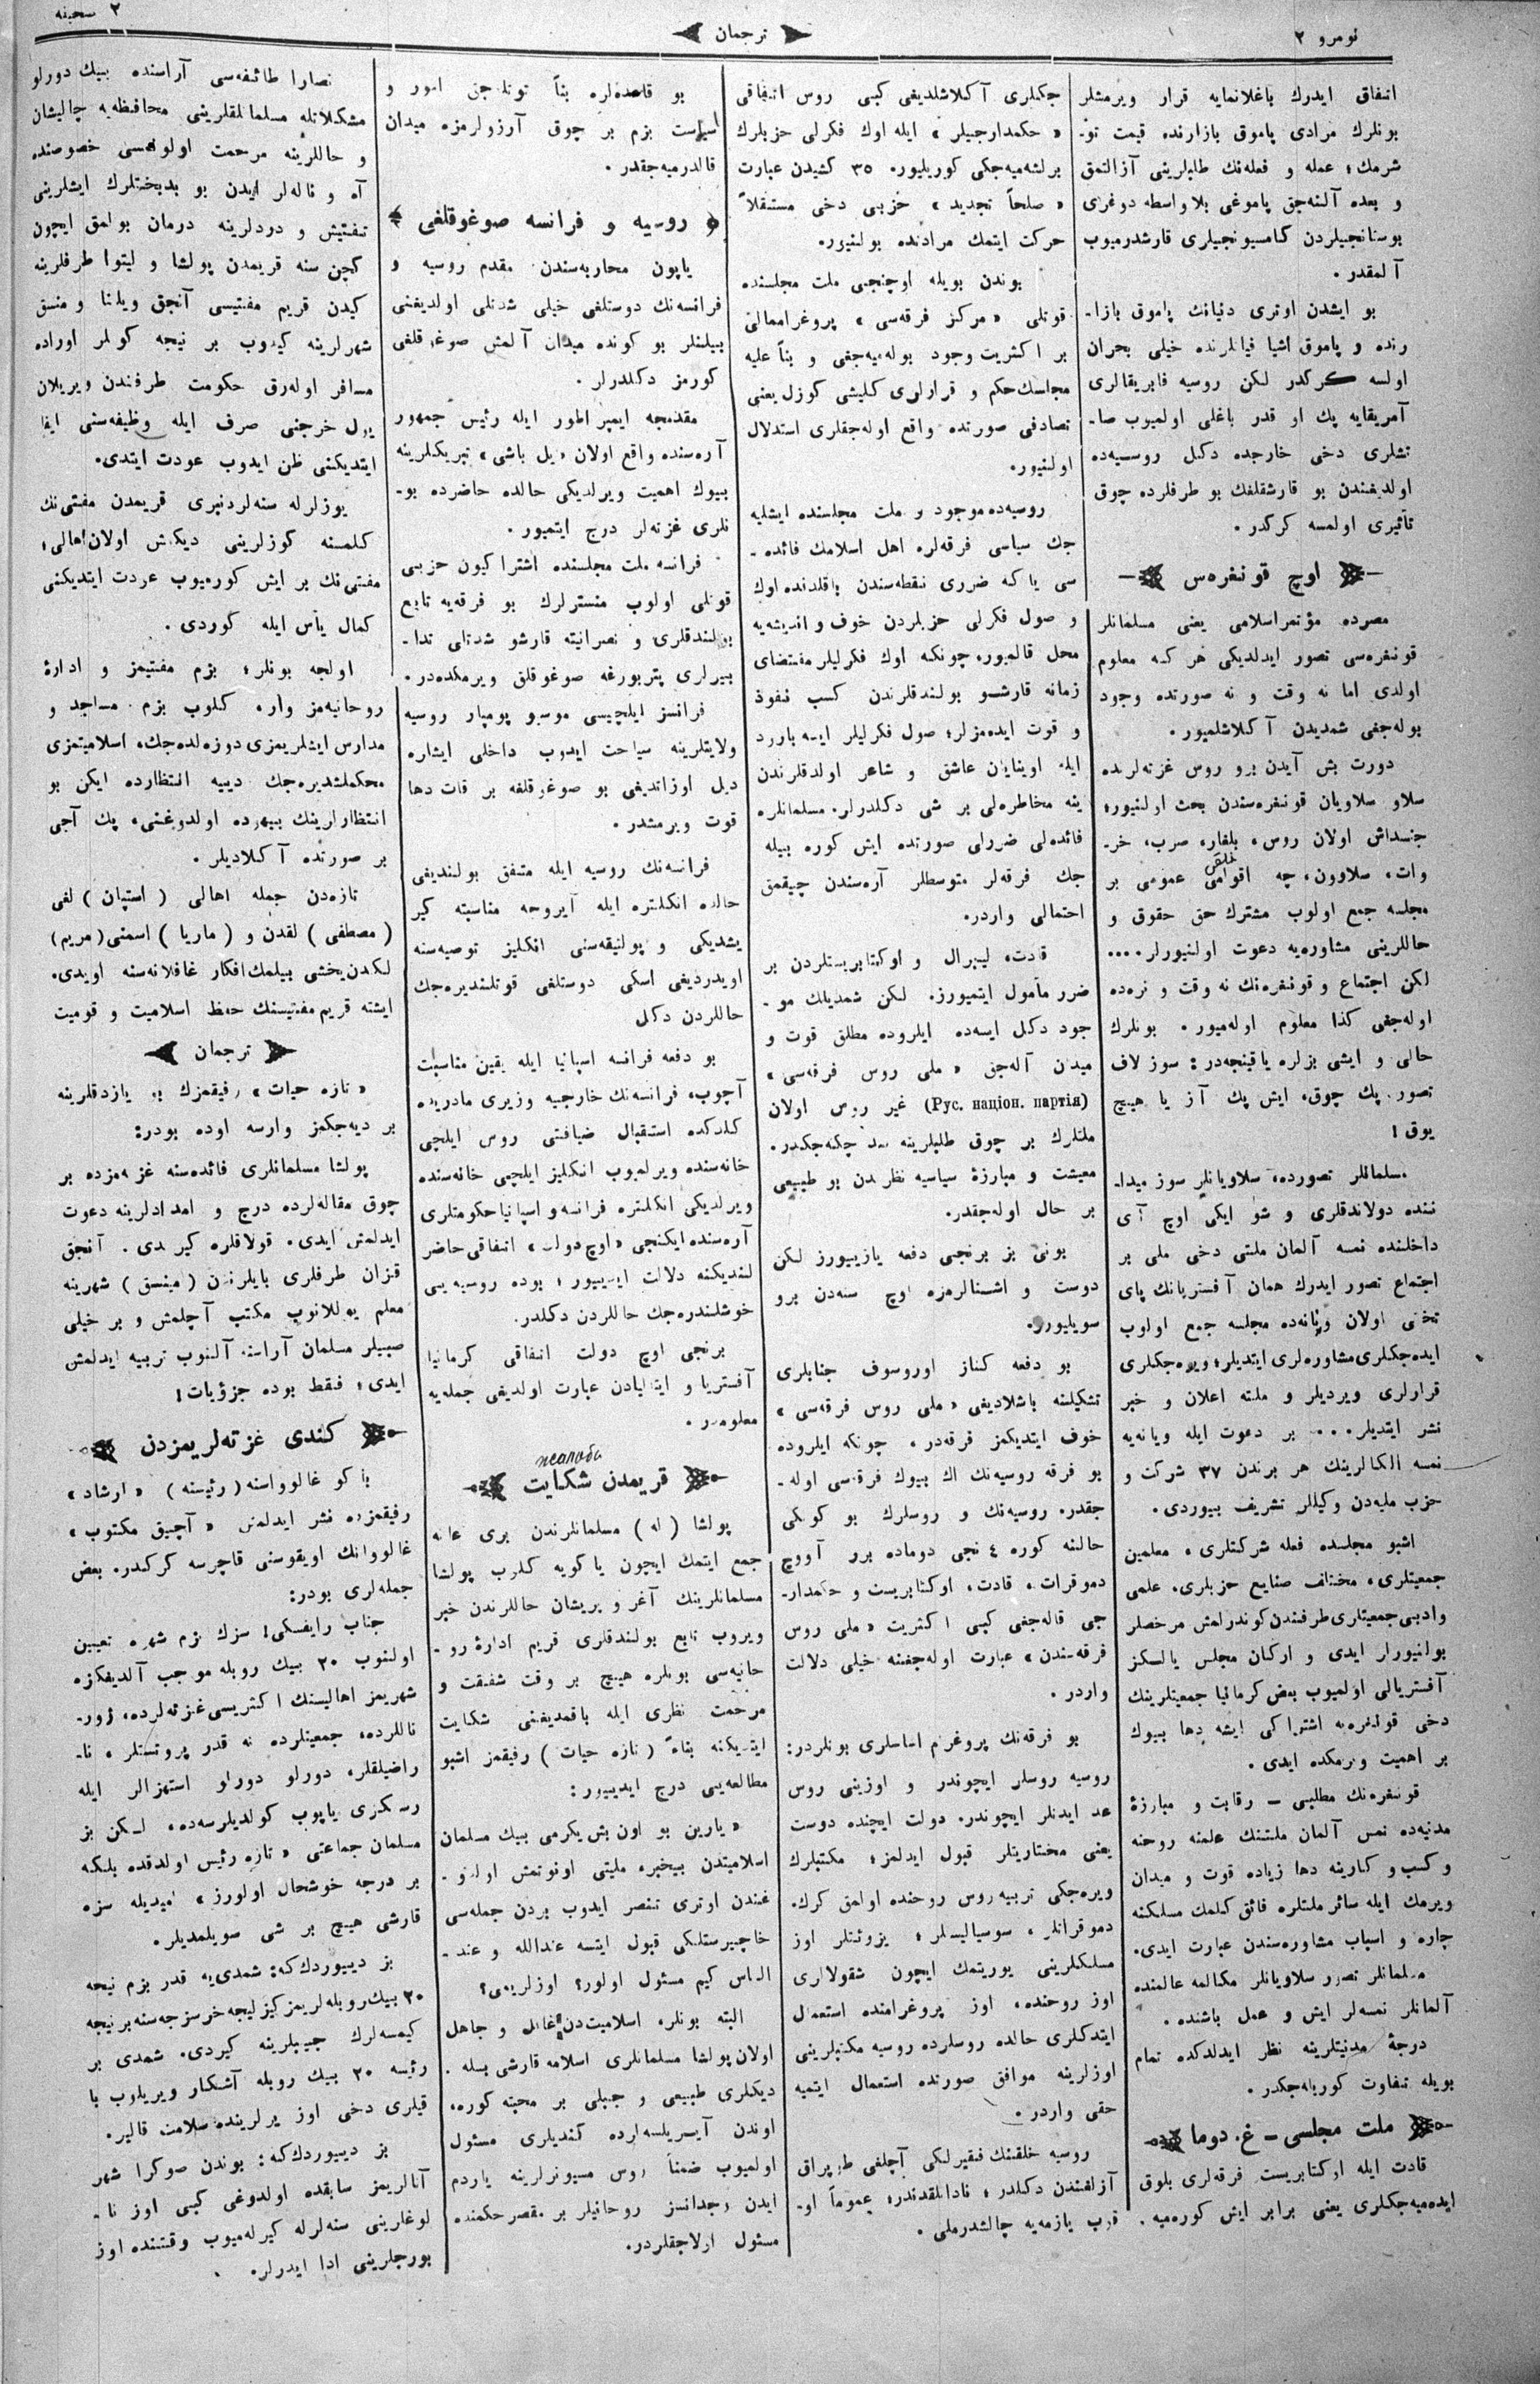 نومرو ٢
ترجمان
٢ صحیفه
اتفاق ایدرك باغلانمایه قرار ویرمشلر
بونلرك مرادی پاموق بازارنده قیمت تو-
شرمك؛ عمله و فعله‌نك طلبلرینی آزالتمق
و بعده آلنه‌جق پاموغی بلا واسطه دوغری
بوستانجیلردن کامسیونجیلری قارشدرمیوب
آلمقدر.
بو ایشدن اوتری دنیانك پاموق بازا-
رنده و پاموق اشیا فیاتلرنده خیلی بحران
اولسه کرکدر لکن روسیه فابریقالری
آمریقایه پك او قدر باغلی اولمیوب صا-
تشلری دخی خارجده دکل روسیه‌ده
اولدیغندن بو قارشقلغك بو طرفلرده چوق
تأثیری اولمسه کرکدر.
اوچ قونغره‌س
مصرده مؤتمر اسلامی یعنی مسلمانلر
قونغره‌سی تصور ایدلدیکی هر کسه معلوم
اولدی اما نه وقت و نه صورتده وجود
بوله‌جغی شمدیدن آکلاشلمیور.
دورت بش آیدن برو روس غزته‌لرنده
سلاو سلاویان قونغره‌سندن بحث اولنیور؛
جنسداش اولان روس، بلغار، صرب، خر-
وات، سلاوون، چه اقوامی عمومی بر
خلق
مجلسه جمع اولوب مشترك حق حقوق و
حاللرینی مشاوره‌یه دعوت اولنیورلر....
لکن اجتماع و قونغره‌نك نه وقت و نره‌ده
اوله‌جغی کذا معلوم اوله‌میور. بونلرك
حالی و ایشی بزلره یاقینجه‌در: سوز لاف
تصور پك چوق، ایش پك آز یا هیچ
یوق!
مسلمانلر تصورده، سلاویانلر سوز میدا-
ننده دولاندقلری و شو ایکی اوچ آی
داخلنده نمسه آلمان ملتی دخی ملی بر
اجتماع تصور ایدرك همان آفستریانك پای
تختی اولان ویانه‌ده مجلسه جمع اولوب
ایده‌جکلری مشاوره‌لری ایتدیلر؛ ویره‌جکلری
قرارلری ویردیلر و ملته اعلان و خبر
نشر ایتدیلر... بر دعوت ایله ویانه‌یه
نمسه الکالرینك هر برندن ٣٧ شرکت و
حزب ملیه‌دن وکیللر تشریف بیوردی.
اشبو مجلسده فعله شرکتلری، معلمین
جمعیتلری، مختلف صنایع حزبلری، علمی
وادبی جمعیتلری طرفندن کوندرلمش مرخصلر
بولنیورلر ایدی و ارکان مجلس یالکز
آفستریالی اولمیوب بعض کرمانیا جمعیتلرینك
دخی قونغره‌یه اشتراکی ایشه دها بیوك
بر اهمیت ویرمکده ایدی.
قونغره‌نك مطلبی — رقابت و مبارزۀ
مدنیه‌ده نمس آلمان ملتنك علمنه روحنه
و کسب و کارینه دها زیاده قوت و میدان
ویرمك ایله سائر ملتلره فائق کلمك مسلکنه
چاره و اسباب مشاوره‌سندن عبارت ایدی.
مسلمانلر تصور سلاویانلر مکالمه عالمنده
آلمانلر نمسه‌لر ایش و عمل باشنده.
درجۀ مدنیتلرینه نظر ایدلدکده تمام
بویله تفاوت کوریله‌جکدر.
ملت مجلسی — غ. دوما
قادت ایله ارکتابریست فرقه‌لری بلوق
ایده‌میه‌جکلری یعنی برابر ایش کوره‌میه-
جکلری آکلاشلدیغی کبی روس اتفاقی
« حکمدارجیلر » ایله اوك فکرلی حزبلرك
برلشه‌میه‌جکی کوریلیور. ٣٥ کشیدن عبارت
« صلحاً تجدید » حزبی دخی مستقلاً
حرکت ایتمك مرادنده بولنیور.
بوندن بویله اوچنجی ملت مجلسنده
قوتلی « مرکز فرقه‌سی » پروغرامعالق
بر اکثریت وجود بوله‌میه‌جغی و بناً علیه
مجلسك حکم و قرارلری کلیشی کوزل یعنی
تصادفی صورتده واقع اوله‌جقلری استدلال
اولنیور.
روسیه‌ده موجود و ملت مجلسنده ایشلیه
جك سیاسی فرقه‌لره اهل اسلامك فائده-
سی یا که ضرری نقطه‌سندن باقلدنده اوك
و صول فکرلی حزبلردن خوف و اندیشه‌یه
محل قالمیور، چونکه اوك فکرلیلر مقتضای
زمانه قارشو بولندقلرندن کسب نفوذ
و قوت ایده‌مزلر؛ صول فکرلیلر ایسه بارود
ایله اوینایان عاشق و شاعر اولدقلرندن
ینه مخاطره‌لی بر شی دکلدرلر. مسلمانلره
فائده‌لی ضررلی صورتده ایش کوره بیله
جك فرقه‌لر متوسطلر آره‌سندن چیقمق
احتمالی واردر.
قادت، لیبرال و اوکتابریستلردن بر
ضرر مأمول ایتمیورز. لکن شمدیلك مو-
جود دکل ایسه‌ده ایلروده مطلق قوت و
میدن آله‌جق « ملی روس فرقه‌سی »
(Рус. націон. партія) غیر روس اولان
ملتلرك بر چوق طلبلرینه سد چکه‌جکدر.
معیشت و مبارزۀ سیاسیه نظرندن بو طبیعی
بر حال اوله‌جقدر.
بونی بز برنجی دفعه یازمیورز لکن
دوست و اشنالرمزه اوچ سنه‌دن برو
سویلیورز.
بو دفعه کناز اوروسوف جنابلری
تشکیلنه باشلادیغی « ملی روس فرقه‌سی »
خوف ایتدیکمز فرقه‌در. چونکه ایلروده
بو فرقه روسیه‌نك اك بیوك فرقه‌سی اوله-
جقدر. روسیه‌نك و روسلرك بو کونکی
حالنه کوره ٤ نجی دوماده برر آووچ
دموقرات، قادت، اوکتابریست و حکمدار-
جی قاله‌جغی کبی اکثریت « ملی روس
فرقه‌سندن » عبارت اوله‌جغنه خیلی دلالت
واردر.
بو فرقه‌نك پروغرم اساسلری بونلردر:
روسیه روسلر ایچوندر و اوزینی روس
عد ایدنلر ایچوندر. دولت ایچنده دوست
یعنی مختاریتلر قبول ایدلمز؛ مکتبلرك
ویره‌جکی تربیه روس روحنده اولمق کرك.
دموقراتلر، سوسیالیستلر، یزوئتلر اوز
مسلکلرینی یوریتمك ایچون شقولالری
اوز روحنده، اوز پروغرامنده استعمال
ایتدکلری حالده روسلرده روسیه مکتبلرینی
اوزلرینه موافق صورتده استعمال ایتمیه
حقی واردر.
روسیه خلقنك فقیرلکی آچلغی طوپراق
آزلغندن دکلدر؛ نادانلقدندر؛ عموماً او-
قوب یازمه‌یه چالشدرملی.
بو قاعده‌لره بناً توتله‌جق امور و
سیاست بزم بر چوق آرزولرمزه میدان
قالدرمیه‌جقدر.
﴿ روسیه و فرانسه صوغوقلغی ﴾
یاپون محاربه‌سندن مقدم روسیه و
فرانسه‌نك دوستلغی خیلی شدتلی اولدیغنی
بیلنلر بو کونده میدان آلمش صوغوقلغی
کورمز دکلدرلر.
مقدمجه ایمپراطور ایله رئیس جمهور
آره‌سنده واقع اولان «یل باشی» تبریکلرینه
بیوك اهمیت ویرلدیکی حالده حاضرده بو-
نلری غزته‌لر درج ایتمیور.
فرانسه ملت مجلسنده اشتراکیون حزبی
قوتلی اولوب منسترلرك بو فرقه‌یه تابع
بولندقلری و نصرانیته قارشو شدتلی تدا-
بیرلری پتربورغه صوغوقلق ویرمکده‌در.
فرانسز ایلچیسی موسیو پومپار روسیه
ولایتلرینه سیاحت ایدوب داخلی ایشاره
دیل اوزاتدیغی بو صوغوقلغه بر قات دها
قوت ویرمشدر.
فرانسه‌نك روسیه ایله متفق بولندیغی
حالده انکلتره ایله آیروجه مناسبته کیر
یشدیکی و پولتیقه‌سنی انکلیز توصیه‌سنه
اویدردیغی اسکی دوستلغی قوتلندیره‌جك
حاللردن دکل
بو دفعه فرانسه اسپانیا ایله یقین مناسبت
آچوب، فرانسه‌نك خارجیه وزیری مادریده
کلدکده استقبال ضیافتی روس ایلچی
خانه‌سنده ویرلمیوب انکلیز ایلچی خانه‌سنده
ویرلدیکی انکلتره فرانسه و اسپانیا حکومتلری
آره‌سنده ایکنجی «اوچ دولت» اتفاقی حاضر
لندیکنه دلالت ایدییور؛ بوده روسیه‌یی
خوشلندره‌جك حاللردن دکلدر.
برنجی اوچ دولت اتفاقی کرمانیا
آفستریا و ایتالیادن عبارت اولدیغی جمله‌یه
معلومدر.
жалоба
قریمدن شکایت
پولشا (له) مسلمانلرندن بری اعانه
جمع ایتمك ایچون باکویه کلوب پولشا
مسلمانلرینك آغر و پریشان حاللرندن خبر
ویروب تابع بولندقلری قریم ادارۀ رو-
حانیه‌سی بونلره هیچ بر وقت شفقت و
مرحمت نظری ایله باقمدیغنی شکایت
ایتدیکنه بناءً (تازه حیات) رفیقمز اشبو
مطالعه‌یی درج ایدییور:
« یارین بو اون بش یکرمی بیك مسلمان
اسلامیتدن بیخبر، ملیتی اونوتمش اولدو-
غندن اوتری تنصر ایدوب بردن جمله‌سی
خاچپرستلکی قبول ایتسه عندالله و عند-
الناس کیم مسئول اولور؟ اوزلریمی؟
البته بونلر، اسلامیت‌دن غافل و جاهل
اولان پولشا مسلمانلری اسلامه قارشی بسله-
دیکلری طبیعی و جبلی بر محبته کوره،
اوندن آیریلسه‌لرده کندیلری مسئول
اولمیوب ضمناً روس مسیونرلرینه یاردم
ایدن وجدانسز روحانیلر بر مقصر حکمنده
مسئول اولاجقلردر.
نصارا طائفه‌سی آراسنده بیك دورلو
مشکلاتله مسلمانلقلرینی محافظه‌یه چالیشان
و حاللرینه مرحمت اولونمسی خصوصنده
آه و ناله‌لر ایدن بو بدبختلرك ایشلرینی
تفتیش و دردلرینه درمان بولمق ایچون
کچن سنه قریمدن پولشا و لیتوا طرفلرینه
کیدن قریم مفتیسی آنجق ویلنا و منسق
شهرلرینه کیدوب بر نیجه کونلر اوراده
مسافر اوله‌رق حکومت طرفندن ویریلان
یول خرجنی صرف ایله وظیفه‌سنی ایفا
ایتدیکنی ظن ایدوب عودت ایتدی.
یوزلرله سنه‌لردنبری قریمدن مفتی‌نك
کلمسنه کوزلرینی دیکمش اولان اهالی؛
مفتی‌نك بر ایش کورمیوب عودت ایتدیکنی
کمال یأس ایله کوردی.
اولجه بونلر؛ بزم مفتیمز و ادارۀ
روحانیه‌مز وار، کلوب بزم مساجد و
مدارس ایشلریمزی دوزه‌لده‌جك، اسلامیتمزی
محکملشدیره‌جك دییه انتظارده ایکن بو
انتظارلرینك بیهوده اولدوغنی، پك آجی
بر صورتده آکلادیلر.
تازه‌دن جمله اهالی (استپان) لغی
(مصطفی) لقدن و (ماریا) اسمنی (مریم)
لکدن یخشی بیلمك افکار غافلانه‌سنه اویدی.
ایشته قریم مفتیسنك حفظ اسلامیت و قومیت
ترجمان
« تازه حیات » رفیقمزك بو یازدقلرینه
بر دیه‌جکمز وارسه اوده بودر:
پولشا مسلمانلری فائده‌سنه غزته‌مزده بر
چوق مقاله‌لرده درج و امدادلرینه دعوت
ایدلمش ایدی. قولاقلره کیرمدی. آنجق
قزان طرفلری بایلرندن (مینسق) شهرینه
معلم یوللانوب مکتب آچلمش و بر خیلی
صبیلر مسلمان آراسنه آلنوب تربیه ایدلمش
ایدی؛ فقط بوده جزؤیات!
کندی غزته‌لریمزدن
باکو غالوواسنه (رئیسنه) « ارشاد »
رفیقمزده نشر ایدلمش « آچیق مکتوب »
غالووانك اویقوسنی قاچرسه کرکدر. بعض
جمله‌لری بودر:
جناب رایفسکی! سزك بزم شهره تعیین
اولنوب ٢٠ بیك روبله موجب آلدیغکزه
شهریمز اهالیسنك اکثریسی غزته‌لرده، ژور-
ناللرده، جمعیتلرده نه قدر پروتستلر، نا-
راضیلقلر، دورلو دورلو استهزالر ایله
رسکزی یاپوب کولدیلرسه‌ده، لکن بز
مسلمان جماعتی « تازه رئیس اولدقده بلکه
بر درجه خوشحال اولورز » امیدیله سزه
قارشی هیچ بر شی سویلمدیلر.
بز دییوردك که: شمدی‌یه قدر بزم نیجه
٢٠ بیك روبله لریمز کیزلیجه خرسزجه‌سنه بر نیجه
کیمسه‌لرك جیبلرینه کیردی. شمدی بر
رئیسه ٢٠ بیك روبله آشکار ویریلوب با
قیلری دخی اوز یرلرینده سلامت قالیر.
بز دییوردك که: بوندن صوکرا شهر
آتالریمز سابقده اولدوغی کبی اوز نا-
لوغارینی سنه‌لرله کیرله‌میوب وقتنده اوز
بورجلرینی ادا ایدرلر.